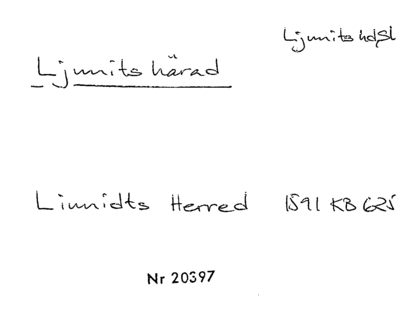 Ljunits hdSl
Ljunits härad
Liunidts Herred 1591 KB 625
Nr 20397